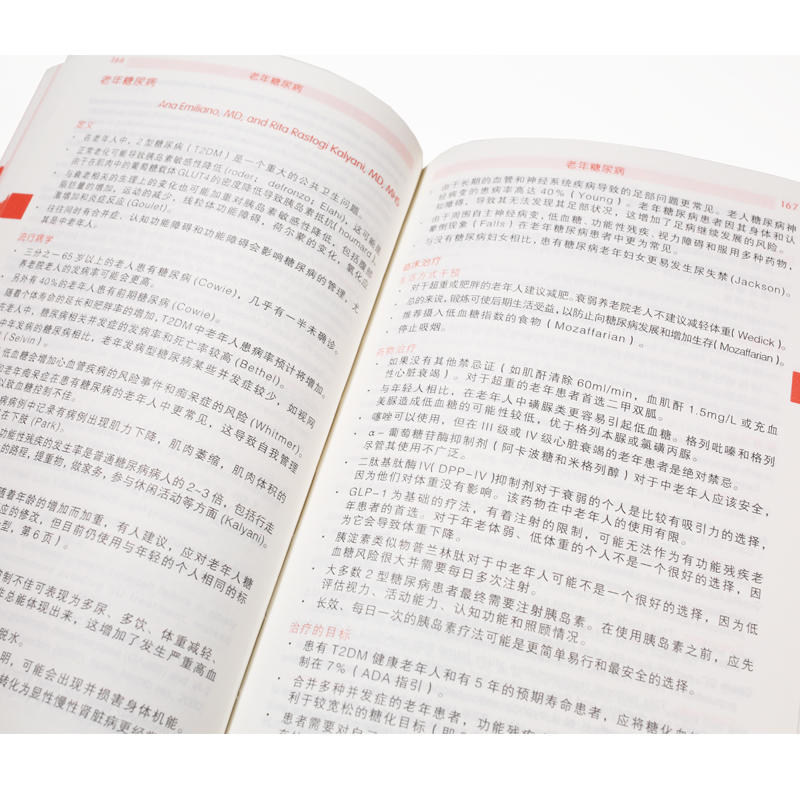 164
老年糖尿病
老年糖尿病
Ana Emiliano, MD, and Rita Rastogi Kalyani, MD, MHS
定义
• 名老年人中，2 型糖尿病（T2DM）是一个重大的公共卫生问题。
• 正常老化可能导致胰岛素敏感性降低(roder; defronzo; Elahi)，这可能
由于在肌肉中的葡萄糖载体GLUT4的密度降低导致胰岛素抵抗(houmard)。
• 与衰老相关的生理上的变化也可能加重对胰岛素敏感性降低，包括腹部
脂肪量的增加，运动的减少，线粒体功能障碍，荷尔蒙的变化，氧化应
激增加和炎症反应(Goulet)。
• 往往同时有合并症、认知功能障碍和功能障碍会影响糖尿病的管理，尤
其是中老年人。
流行病学
三分之一 65岁以上的老人患有糖尿病(Cowie)，几乎有一半未确诊。
养老院老人的发病率可能会更高。
另外有 40%的老年人患有前期糖尿病(Cowie)。
随着个体寿命的延长和肥胖率的增加，T2DM 中老年人患病率预计将增加。
在老年人中，糖尿病相关并发症的发病率和死亡率较高(Bethel)。
中年发病的糖尿病相比，老年发病型糖尿病某些并发症较少，如视网
(Selvin)。
低血糖会增加心血管疾病的风险事件和痴呆症的风险(Whitmer)。
和老年痴呆症在患有糖尿病的老年人中更常见，这导致自我管理
以致血糖控制不佳。
病病例中记录有病例出现肌力下降，肌肉萎缩，肌肉体积的
在下肢(Park)。
功能性残疾的发生率是普通糖尿病病人的 2~3倍，包括行走
的路程，提重物，做家务，参与休闲活动等方面(Kalyani)。
随着年龄的增加而加重，有人建议，应对老年人糖
应的修改，但目前仍使用与年轻的个人相同的标
型，第 6 页)。
制不佳可表现为多尿、多饮、体重减轻、
总能体现出来，这增加了发生严重高血
脱水。
明，可能会出现并损害身体机能。
转化为显性慢性肾脏病更经
老年糖尿病
167
• 由于长期的血管和神经系统疾病导致的足部问题更常见。老人糖尿病神
经病变的患病率高达 40%（Young）。老年糖尿病患者因其身体和认
知障碍，导致其无法发现其足部状况，这增加了足病继续发展的风险。
• 由于周围自主神经病变，低血糖、功能性残疾、视力障碍和服用多种药物，
晕倒现象（Falls）在老年糖尿病患者中更为常见。
• 与没有糖尿病妇女相比，患有糖尿病老年妇女更易发生尿失禁(Jackson)。
临床治疗
生活方式干预
• 对于超重或肥胖的老年人建议减肥。衰弱养老院老人不建议减轻体重(Wedick)。
总的来说，锻炼可使后期生活受益，以防止向糖尿病发展和增加生存(Mozaffarian)。
• 推荐摄入低血糖指数的食物（Mozaffarian）。
• 停止吸烟。
药物治疗
• 如果没有其他禁忌证（如肌酐清除 60ml/min，血肌酐 1.5mg/L 或充血
性心脏衰竭）。对于超重的老年患者首选二甲双胍。
• 与年轻人相比，在老年人中磺脲类更容易引起低血糖。格列吡嗪和格列
美脲造成低血糖的可能性较低，优于格列本脲或氯磺丙脲。
• 噻唑可以使用，但在 III 级或 IV 级心脏衰竭的老年患者是绝对禁忌。
• α－葡萄糖苷酶抑制剂（阿卡波糖和米格列醇）对于中老年人应该安全，
尽管其使用不广泛。
• 二肽基肽酶IV( DPP-IV )抑制剂对于衰弱的个人是比较有吸引力的选择，
因为他们对体重没有影响。该药物在中老年人的使用有限。
• GLP-1 为基础的疗法，有着注射的限制，可能无法作为有功能残疾老
年患者的首选。对于年老体弱、低体重的个人不是一个很好的选择，因
为它会导致体重下降。
• 胰淀素类似物普兰林肽对于中老年人可能不是一个很好的选择，因为低
血糖风险很大并需要每日多次注射。
• 大多数 2 型糖尿病患者最终需要注射胰岛素。在使用胰岛素之前，应先
评估视力、活动能力、认知功能和照顾情况。
• 长效、每日一次的胰岛素疗法可能是更简单易行和最安全的选择。
治疗的目标
• 患有 T2DM 健康老年人和有 5 年的预期寿命患者，应将糖化血
制在 7%（ADA 指引）。
• 合并多种并发症的老年患者，功能残疾
利于较宽松的糖化目标（即
• 患者需要对自己